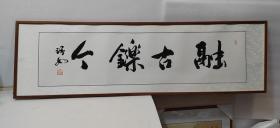 融古鑠今